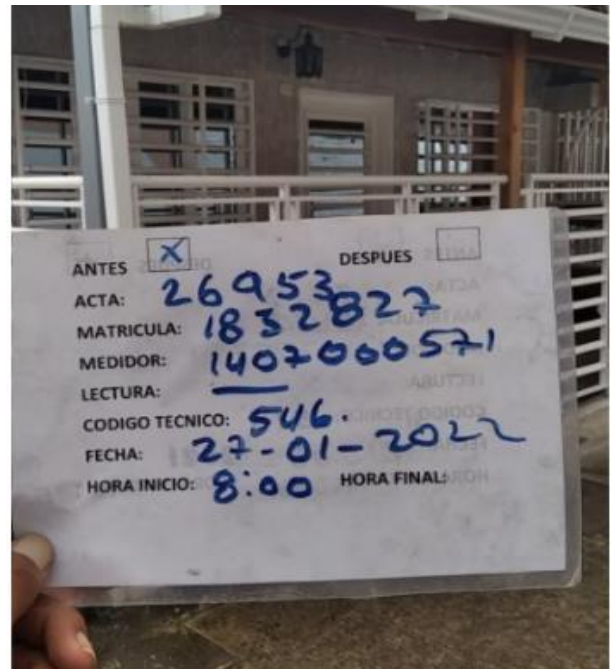 ANTES X DESPUES
ACTA: 26953
MATRICULA: 1832827
MEDIDOR: 1407000571
LECTURA: —
CODIGO TECNICO: 546.
FECHA: 27-01-2022
HORA INICIO: 8:00 HORA FINAL: